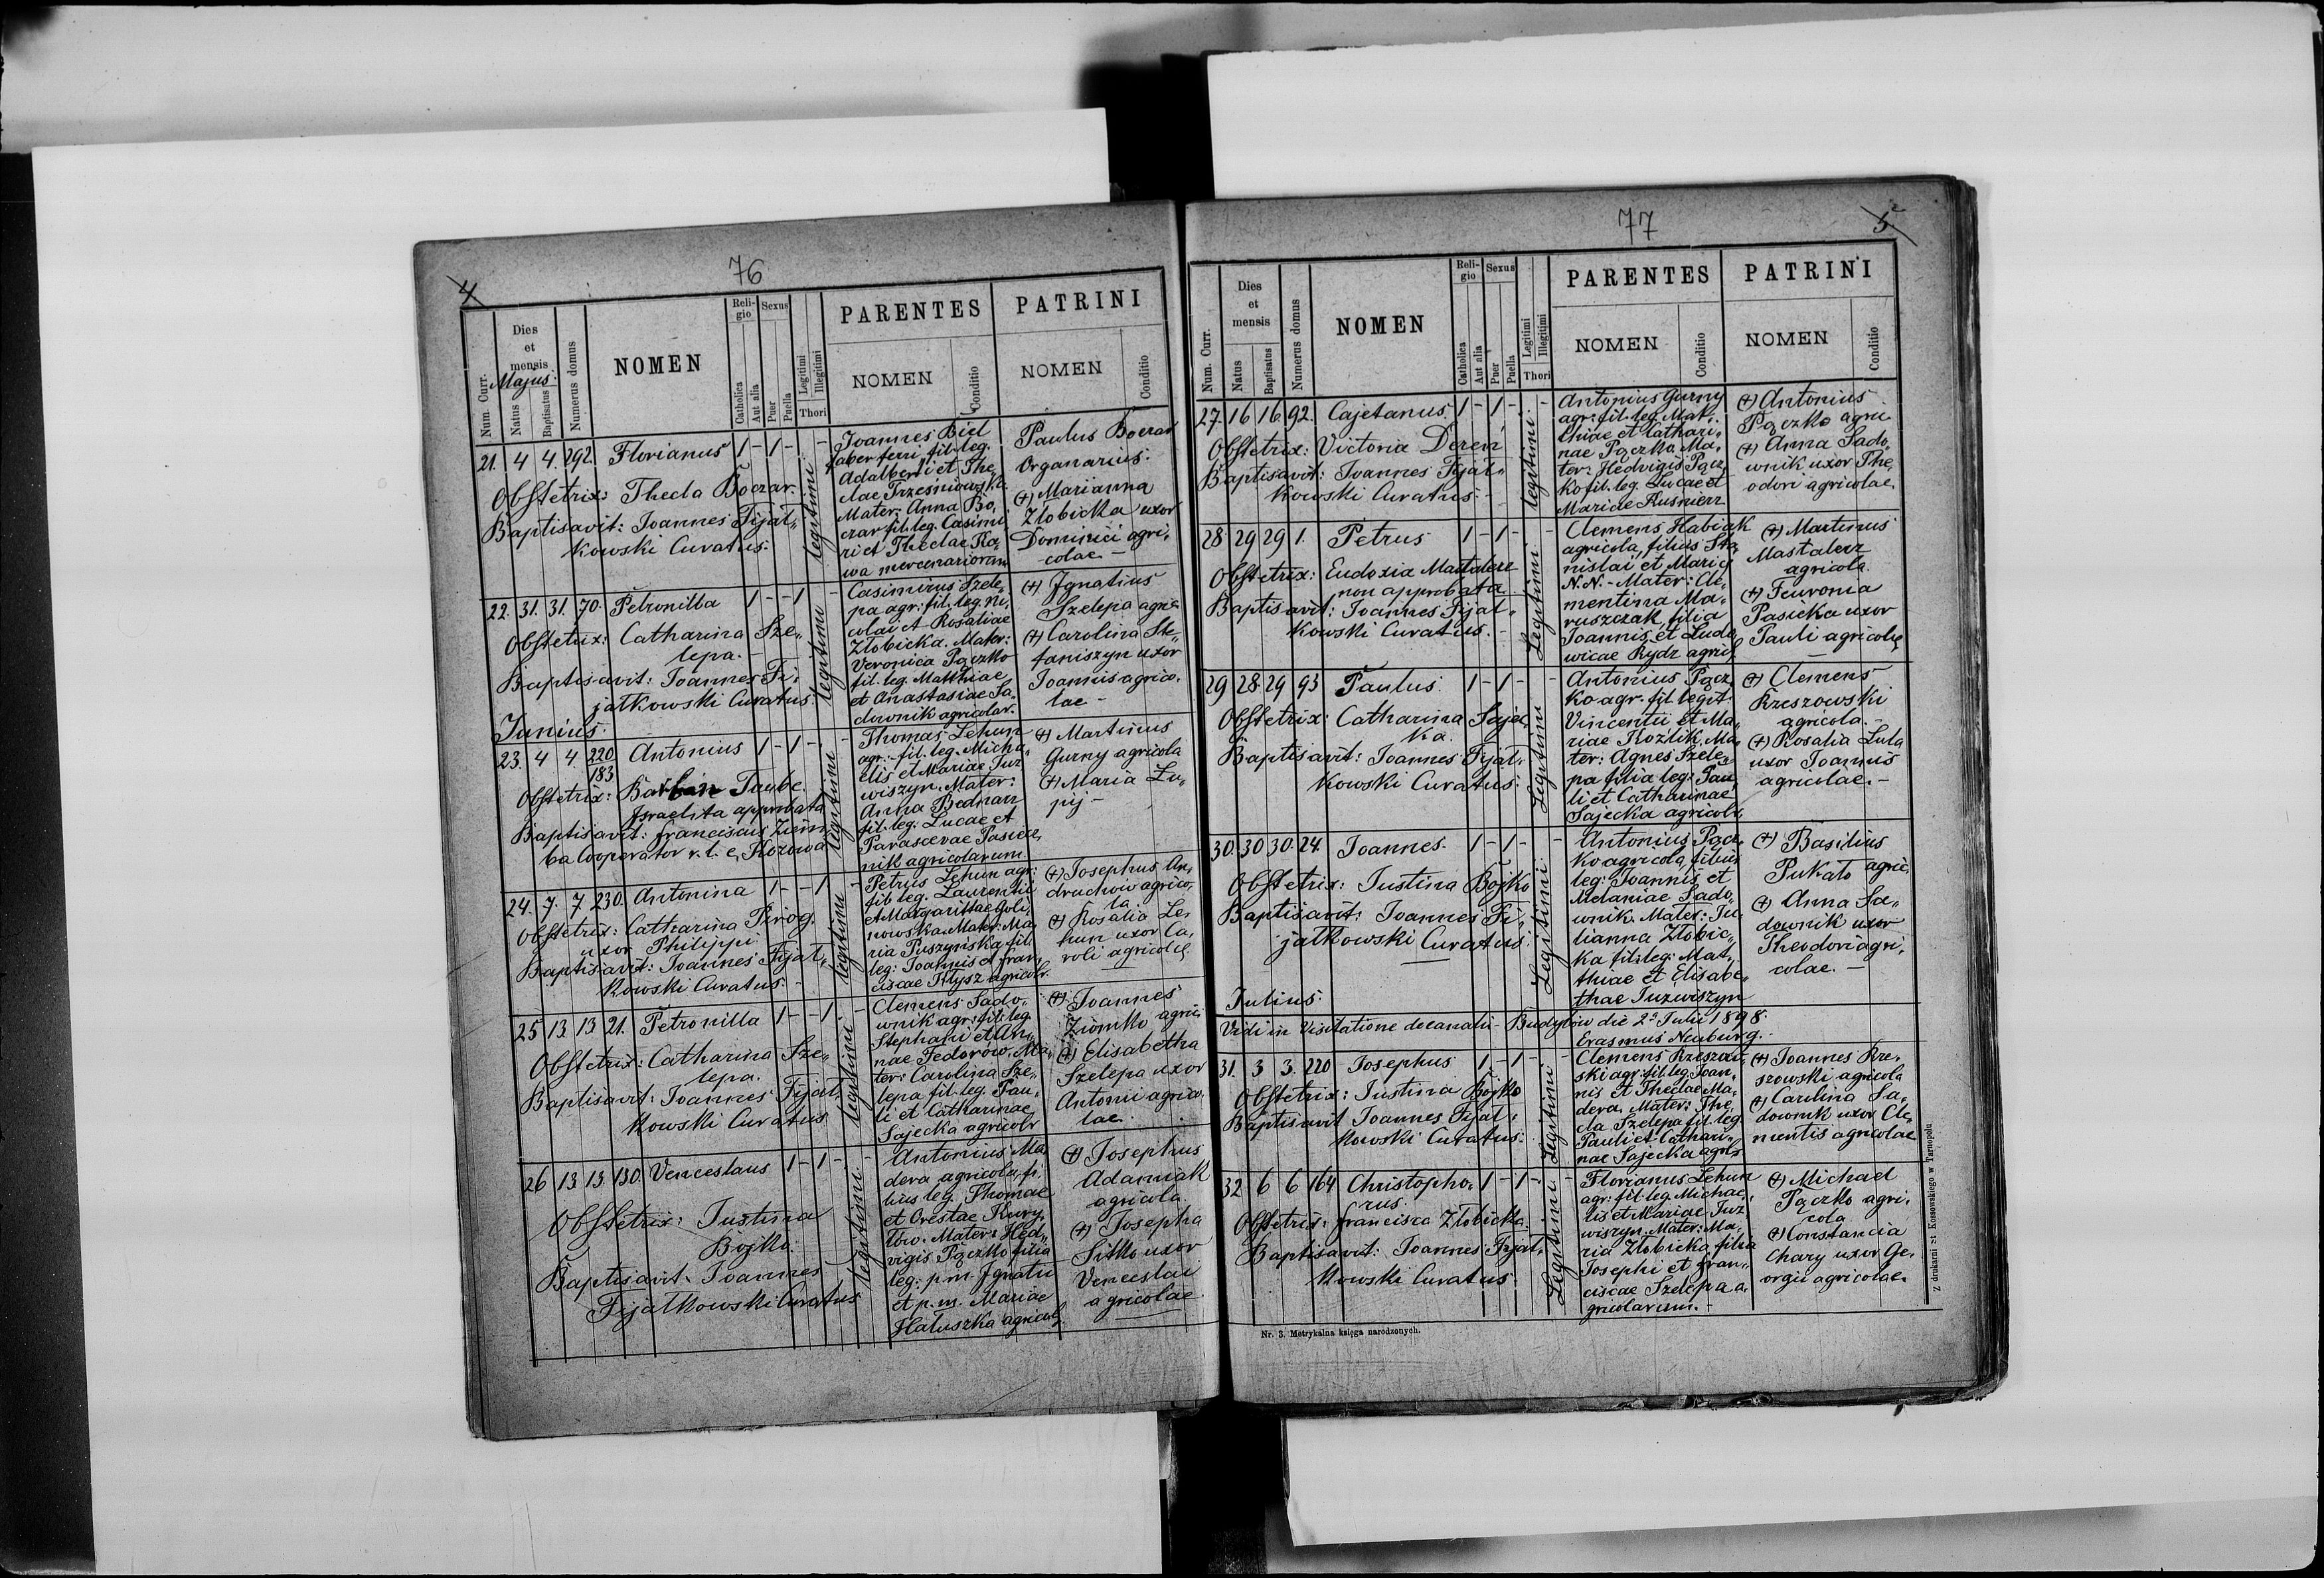 4
76
Num. Curr.
Dies
et
mensis
Majus:
Natus
Baptisatus
Numerus domus
NOMEN
Reli-
gio
Catholica
Aut alia
Sexus
Puer
Puella
Legitimi
Illegitimi
Thori
PARENTES
NOMEN
Conditio
PATRINI
NOMEN
Conditio
21. 4 4. 292. Florianus 1 - 1 - -
Obstetrix: Thecla Boczar.
Baptisavit: Joannes Fijał„
kowski Curatus.
legitimi
Joannes Biel
faber ferri, fil. leg.
Adalberti et The„
clae Trzesniowska
Mater: Anna Bo„
czar fil. leg. Casimi„
ri et Theclae Ka„
wa mercenariorum
Paulus Boczar
Organarius.
(+) Marianna
Złobicka uxor
Dominici agri„
colae. -
22. 31. 31. 70. Petronilla 1 - - 1 -
Obstetrix: Catharina Sze„
lepa. -
Baptisavit: Joannes Fi„
jałkowski Curatus.
legitimi
Casimirus Szele„
pa agr: fil. leg. Ni„
colai et Rosaliae
Złobicka. Mater:
Veronica Pączko
fil. leg. Matthiae
et Anastasiae Sa„
downik agricolar.
(+) Ignatius
Szelepa agric
(+) Carolina Ste„
faniszyn uxor
Joannis agrico„
lae -
Junius.
23. 4 4. 220
183 Antonius 1 - 1 - -
Obstetrix: Taube
Israelita approbata
Baptisavit: Franciscus Ziem„
ba Cooperator r. l. e, Kozowa
legitimi
Thomas Lehun
agr: - fil. leg. Micha„
elis et Mariae Juz„
wiszyn. Mater:
Anna Bednarz
fil. leg: Lucae et
Parascevae Pasiecz„
nik agricolarum.
(+) Martinus
Gurny agricola
(+) Maria Lu„
pij -
24. 7. 7 230. Antonina 1 - - 1 -
Obstetrix: Catharina Pirog.
uxor Philippi
Baptisavit: Joannes Fijał„
kowski Curatus. -
legitimi
Petrus Lehun agr:
fil. leg. Laurentii
et Margarittae Goli„
nowska. Mater: Ma„
ria Puszyńska fil.
leg: Joannis et Fran„
ciscae Kłysz agricolr.
(+) Josephus An„
druchow agrico„
la.
(+) Rosalia Le„
hun uxor Ca„
roli agricolę.
25 13 13 21. Petronilla 1 - - 1 -
Obstetrix: Catharina Sze„
lepa.
Baptisavit: Joannes Fijał„
kowski Curatus
legitimi
Clemens Sado„
wnik agr: fil: leg.
Stephani et An„
nae Fedorów. Ma„
ter: Carolina Sze„
lepa fil. leg. Pau„
li et Catharinae
Sajecka agricolr
(+) Joannes
Ziomko agric
(+) Elisabetha
Szelepa uxor
Antonii agrico„
lae.
26 13 13 130. Venceslaus 1 - 1 - -
Obstetrix: Justina
Bojko.
Baptisavit. Joannes
Fijałkowski Curatus
legitimi
Antonius Ma„
dera agricola, fi„
lius leg. Thomae
et Orestae Kury„
łów. Mater: Hed„
vigis Pączko filia
leg: p.m. Ignatii
et p.m. Mariae
Hałuszka agricol.
(+) Josephus
Adamiak
agricola.
(+) Josepha
Sitko uxor
Venceslai
agricolae.
77
5
Num. Curr.
Dies
et
mensis
Natus
Baptisatus
Numerus domus
NOMEN
Reli-
gio
Catholica
Aut alia
Sexus
Puer
Puella
Legitimi
Illegitimi
Thori
PARENTES
NOMEN
Conditio
PATRINI
NOMEN
Conditio
27. 16 16 92. Cajetanus. 1 - 1 - -
Obstetrix: Victoria Dereń
Baptisavit: Joannes Fijał„
kowski Curatus. -
legitimi.
Antonius Gurny
agr: fil. leg. Mat„
thiae et Cathari„
nae Pączko. Ma„
ter: Hedvigis Pącz„
ko fil. leg. Lucae et
Mariae Kusnierz
(+) Antonius
Pączko agric
(+) Anna Sado„
wnik uxor The„
odori agricolae.
28. 29 29 1. Petrus 1 - 1 - -
Obstetrix: Eudoxia Mastalerz
non approbata
Baptisavit: Joannes Fijał„
kowski Curatus. -
Legitimi
Clemens Habiak
agricola, filius Sta„
nislai et Marię
N.N. - Mater: Cle„
mentina Ma„
ruszczak, filia
Joannis et Ludo„
wicae Rydz agric.
(+) Martinus
Mastalerz
agricola.
(+) Feuronia
Pasieka uxor
Pauli agricolę
29 28. 29 93 Paulus. 1 - 1 - -
Obstetrix: Catharina Sajec„
ka.
Baptisavit: Joannes Fijał„
kowski Curatus.
Legitimi
Antonius Pącz„
ko agr. fil. legit.
Vincentii et Ma„
riae Kozlik. Ma„
ter: Agnes Szele„
pa filia leg: Pau„
li et Catharinae
Sajecka agricolr.
(+) Clemens
Rzeszowski
agricola. -
(+) Rosalia Luta
uxor Joannis
agricolae. -
30. 30 30. 24. Joannes. 1 - 1 - -
Obstetrix: Justina Bojko
Baptisavit: Joannes Fi„
jałkowski Curatus.
Legitimi
Antonius Pącz„
ko agricola, filius
leg: Joannis et
Melaniae Sado„
wnik. Mater: Ju„
lianna Złobic„
ka fil: leg: Mat„
thiae et Elisabe„
thae Juzwiszyn
(+) Basilius
Pukało agric.
(+) Anna Sa„
downik uxor
Theodori agri„
colae. -
Julius.
Vidi in Visitatione decanali - Budyłów die 2º Julii 1898.
Erasmus Neuburg. -
31. 3 3. 220 Josephus 1 - 1 - -
Obstetrix: Justina Bojko
Baptisavit Joannes Fijał„
kowski Curatus.
Legitimi
Clemens Rzeszow„
ski agr: fil. leg. Joan„
nis et Theclae Ma„
dera, Mater: The„
cla Szelepa fil. leg.
Pauli et Cathari„
nae Sajecka agric
(+) Joannes Rze„
szowski agricola
(+) Carolina Sa„
downik uxor Cle„
mentis agricolae
32 6 6 164 Christopho„ 1 - 1 - -
rus.
Obstetrix: Francisca Złobicka.
Baptisavit: Joannes Fijał„
kowski Curatus.
Legitimi
Florianus Lehun
agr: fil. leg. Michae„
lis et Mariae Juz„
wiszyn. Mater: Ma„
ria Złobicka filia
Josephi et Fran„
ciscae Szelepa a„
gricolarum. -
(+) Michael
Pączko agri„
cola
(+) Constancia
Chary uxor Ge„
orgii agricolae.
Nr. 3. Metrykalna księga narodzonych.
Z drukarni St. Kossowskiego w Tarnopolu